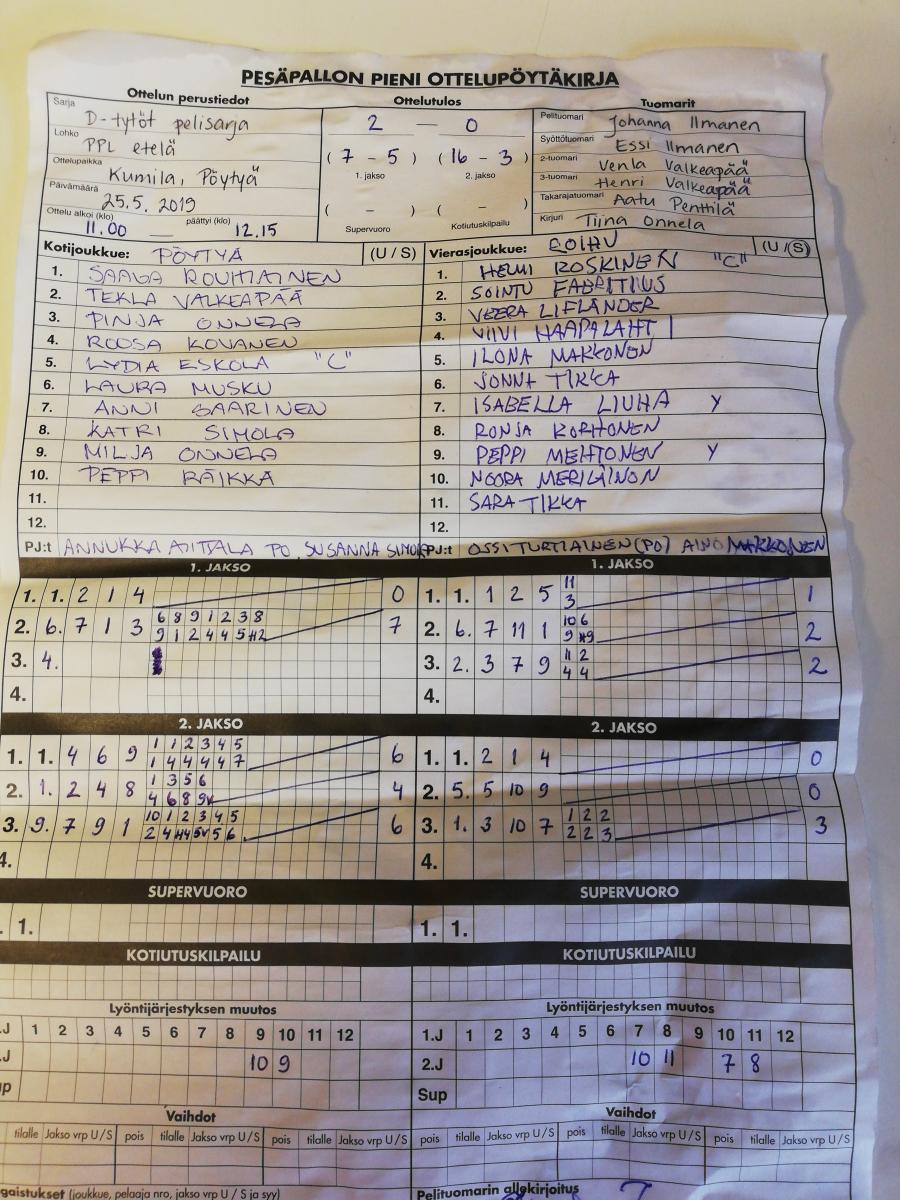 PESÄPALLON PIENI OTTELUPÖYTÄKIRJA
Ottelun perustiedot
Sarja D-tytöt pelisarja
Lohko PPL etelä
Ottelupaikka Kumila, Pöytyä
Päivämäärä 25.5. 2019
Ottelu alkoi (klo) 11.00 päättyi (klo) 12.15
Ottelutulos
2 — 0
( 7 - 5 ) ( 16 - 3 )
1. jakso 2. jakso
( - ) ( - )
Supervuoro Kotiutuskilpailu
Tuomarit
Pelituomari Johanna Ilmanen
Syöttötuomari Essi Ilmanen
2-tuomari Venla Valkeapää
3-tuomari Henri Valkeapää
Takarajatuomari Aatu Penttilä
Kirjuri Tiina Onnela
Kotijoukkue: PÖYTYÄ (U / S)
1. SAAGA ROUHIAINEN
2. TEKLA VALKEAPÄÄ
3. PINJA ONNELA
4. ROOSA KOVANEN
5. LYDIA ESKOLA "C"
6. LAURA MUSKU
7. ANNI SAARINEN
8. KATRI SIMOLA
9. MILJA ONNELA
10. PEPPI RÄIKKÄ
11.
12.
PJ:t ANNUKKA PO. SUSANNA
Vierasjoukkue: ROIHU (U / S)
1. HELMI ROSKINEN "C"
2. SOINTU FABRITIUS
3. VEERA LIFLÄNDER
4. VIIVI HAAPALAHTI
5. ILONA MAKKONEN
6. JONNA TIKKA
7. ISABELLA LIUHA Y
8. RONJA KORHONEN
9. PEPPI MEHTONEN Y
10. NOORA MERILÄINON
11. SARA TIKKA
12.
PJ:t OSSI TURTIAINEN (PO) AINO MAKKONEN
1. JAKSO
1. 1. 2 1 4 0
6 8 9 1 2 3 8
2. 6. 7 1 3 7
9 1 2 4 4 5 #2
3. 4.
4.
1. JAKSO
11
1. 1. 1 2 5 1
3
10 6
2. 6. 7 11 1 2
9 #9
11 2
3. 2. 3 7 9 2
4 4
4.
2. JAKSO
1 1 2 3 4 5
1. 1. 4 6 9 6
1 4 4 4 4 7
1 3 5 6
2. 1. 2 4 8 4
4 6 8 9v
10 1 2 3 4 5
3. 9. 7 9 1 6
2 4 #4 5v 5 6
4.
2. JAKSO
1. 1. 2 1 4 0
2. 5. 5 10 9 0
1 2 2
3. 1. 3 10 7 3
2 2 3
4.
SUPERVUORO
. 1.
SUPERVUORO
1. 1.
KOTIUTUSKILPAILU
KOTIUTUSKILPAILU
Lyöntijärjestyksen muutos
.J 1 2 3 4 5 6 7 8 9 10 11 12
.J 10 9
up
Lyöntijärjestyksen muutos
1.J 1 2 3 4 5 6 7 8 9 10 11 12
2.J 10 11 7 8
Sup
Vaihdot
tilalle Jakso vrp U / S pois tilalle Jakso vrp U / S pois tilalle Jakso vrp U / S
Vaihdot
pois tilalle Jakso vrp U / S pois tilalle Jakso vrp U / S pois tilalle Jakso vrp U / S
gaistukset (joukkue, pelaaja nro, jakso vrp U / S ja syy)
Pelituomarin allekirjoitus